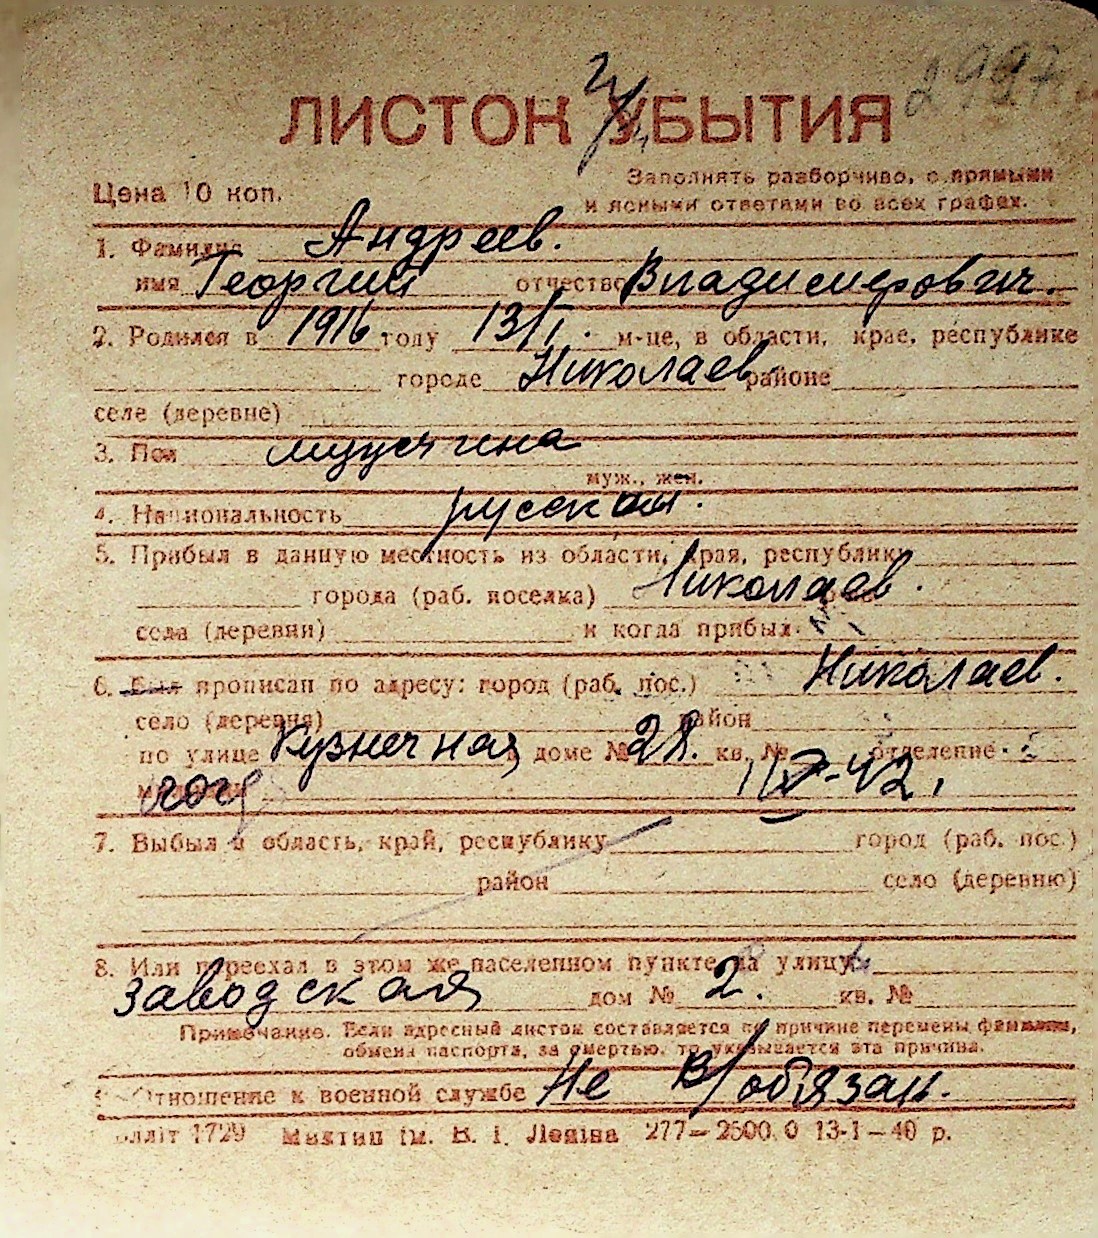 ЛИСТОК УБЫТИЯ
Цена 10 коп.
Заполнять разборчиво, с прямыми
и ясными ответами во всех графах.
1. Фамилия Андреев.
имя Георгий отчество Владимирович.
2. Родился в 1916 году 13/I. м-це, в области, крае, республике
городе Николаев районе
селе (деревне)
3. Пол мущина
муж., жен.
4. Национальность русский.
5. Прибыл в данную местность из области, края, республики
города (раб. поселка) Николаев.
села (деревни) и когда прибыл
6. Был прописан по адресу: город (раб. пос.) Николаев.
село (деревня) район
по улице Кузнечная доме № 28. кв. № отделение
7. Выбыл в область, край, республику город (раб. пос.)
район село (деревню)
8. Или переехал в этом же населенном пункте на улицу
Заводская дом № 2. кв. №
Примечание. Если адресный листок составляется по причине перемены фамилии,
обмена паспорта, за смертью, то указывается эта причина.
Отношение к военной службе Не в/обязан.
1729 ім. В. І. Леніна 277—2500.0 13-1—40 р.